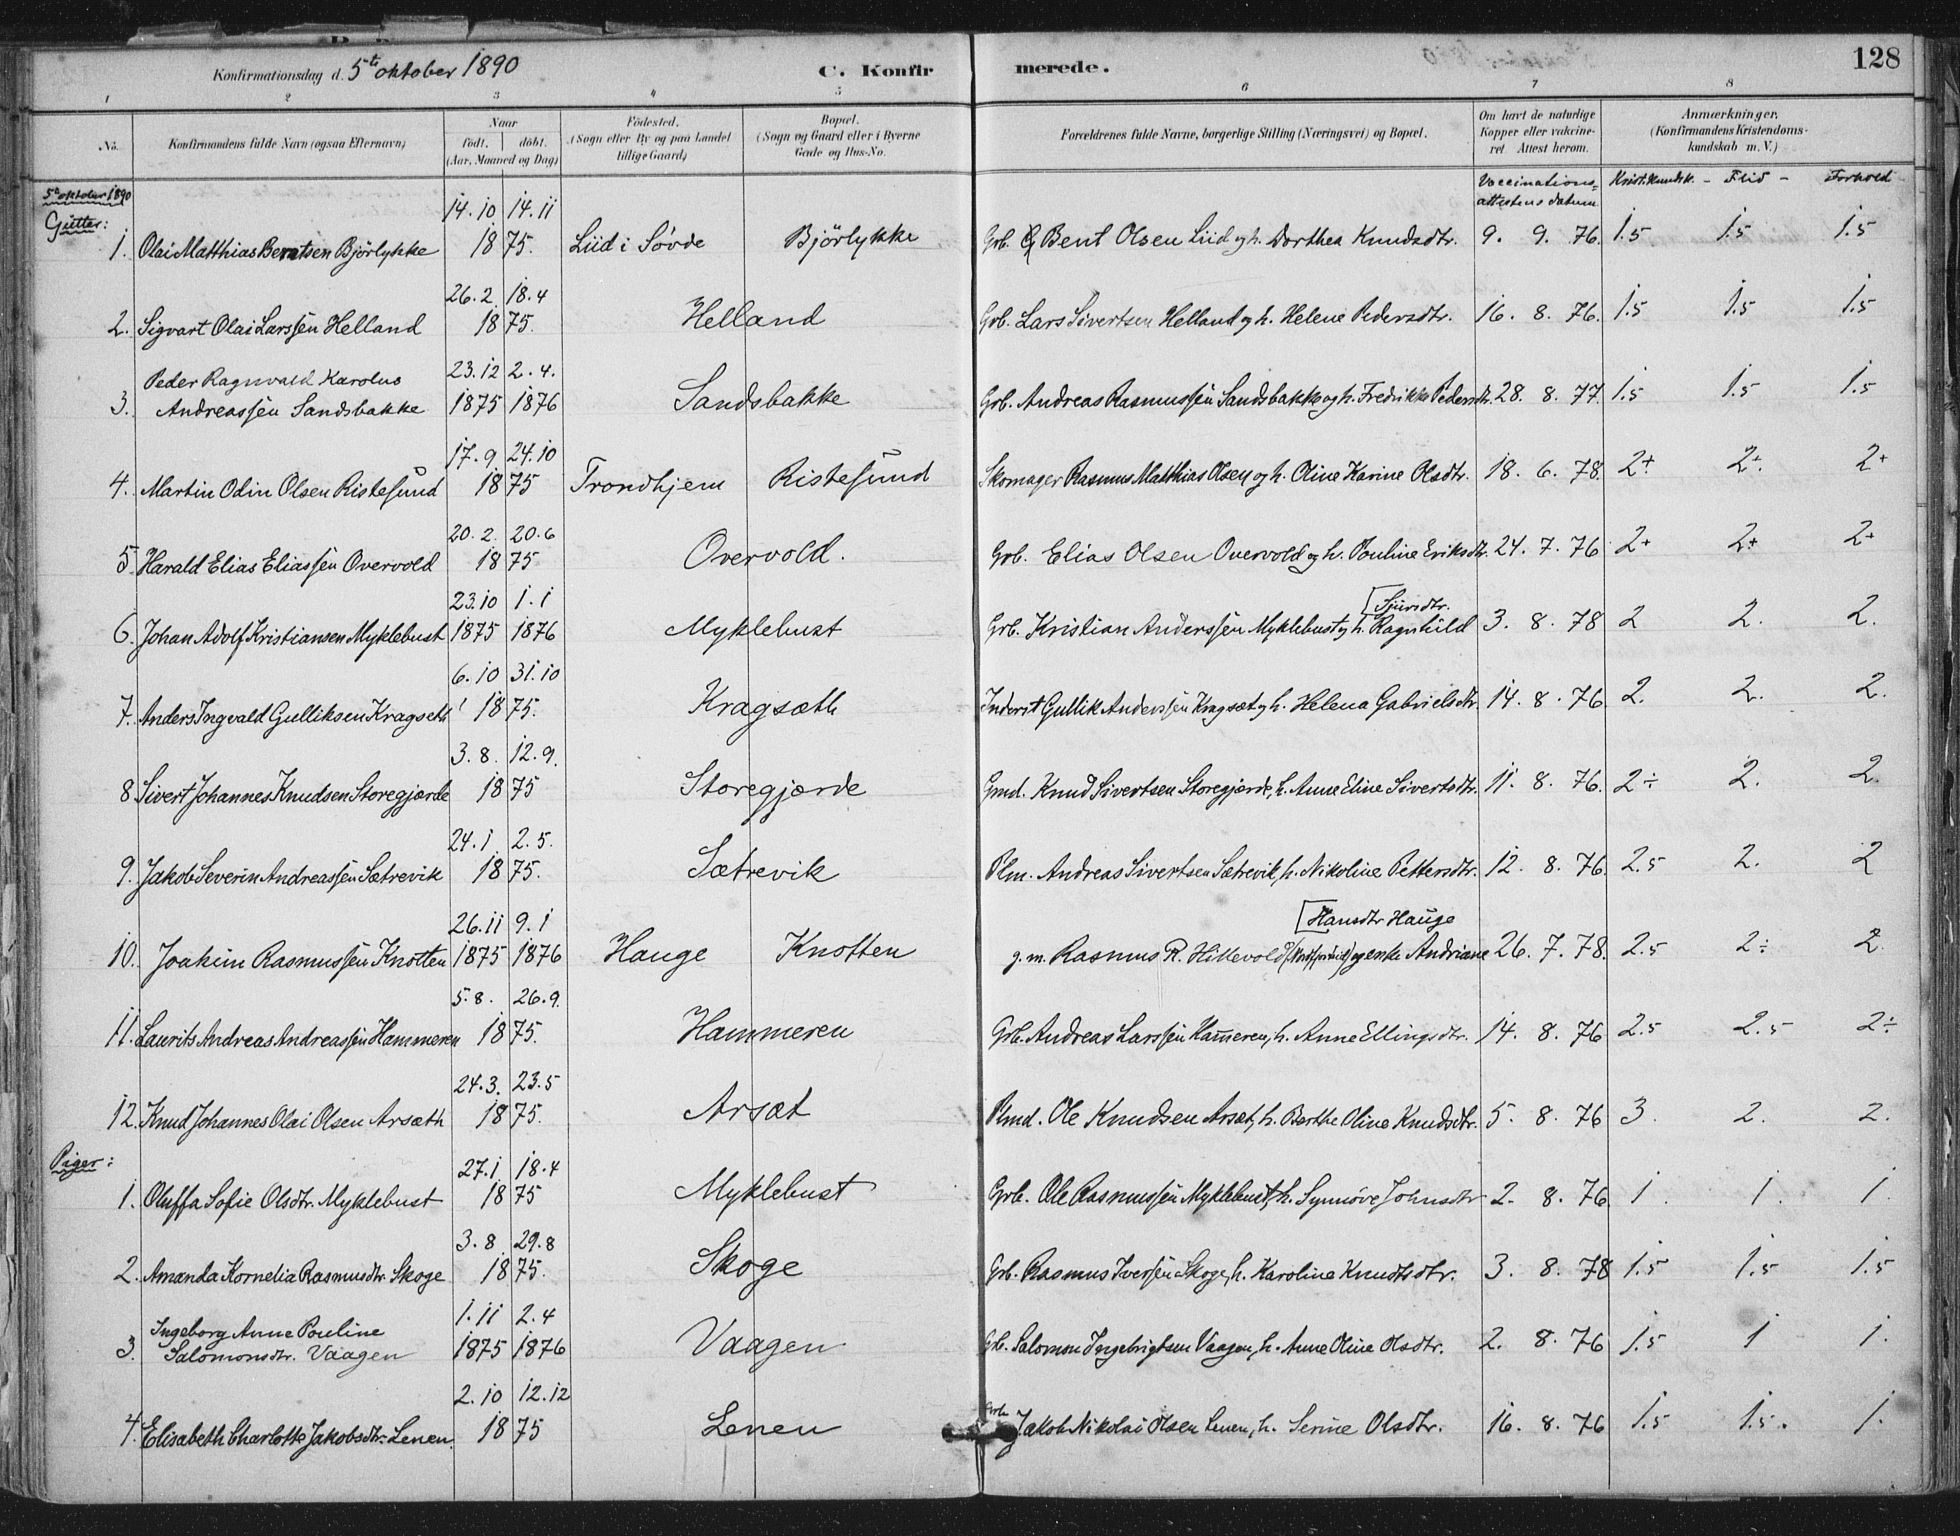 Konfirmationsdag d. 5te oktober 1890 C. Konfirmerede. 128
1 2 3 4 5 6 7 8
No. Konfirmandens fulde Navn (ogsaa Efternavn) Naar født. døbt. (Aar, Maaned og Dag) Fødested. (Sogn eller By og paa Landet tillige Gaard) Bopæl. (Sogn og Gaard eller i Byerne Gade og Hus-No. Forældrenes fulde Navne, borgerlige Stilling (Næringsvei) og Bopæl. Om havt de naturlige Kopper eller vakcineret. Attest herom. Anmærkninger. (Konfirmandens Kristendomskundskab m. V.)
5te oktober 1890 Vaccinations= attestens datum Krist.kundsk. - Flid - Forhold
Gutter:
14.10 14.11
1. Olai Matthias Berntsen Bjørlykke 1875. Liid i Søvde Bjørlykke Grb. Bent Olsen Liid og h. Dorthea Knudsdtr. 9. 9. 76. 1.5 1.5 1.5
26.2. 18.4
2. Sigvart Olai Larssen Helland 1875. Helland Grb. Lars Sivertsen Helland og h. Helene Pedersdtr. 16. 8. 76. 1.5 1.5 1.5
Peder Ragnvald Karolus 23.12 2.4.
3. Andreassen Sandsbakke 1875 1876 Sandsbakke Grb. Andreas Rasmussen Sandsbakke og h. Fredrikke Pedersdtr. 28. 8. 77. 1.5 1.5 1.5
17.9 24.10
4. Martin Odin Olsen Ristesund 1875 Trondhjem Ristesund Skomager Rasmus Matthias Olsen og h. Oline Karine Olsdtr. 18. 6. 78. 2+ 2+. 2+
20.2. 20.6
5. Harald Elias Eliassen Overvold 1875 Overvold. Grb. Elias Olsen Overvold og h. Pouline Eriksdtr. 24. 7. 76. 2+ 2+ 2+
23.10 1.1 [Sjursdtr.
6. Johan Adolf Kristiansen Myklebust 1875 1876 Myklebust Grb. Kristian Anderssen Myklebust og h. Ragnhild 3. 8. 78 2 2. 2.
6.10 31.10
7. Anders Ingvald Gulliksen Kragseth 1875. Kragsæth Inderst Gullik Anderssen Kragsæt og h. Helena Gabrielsdtr. 14. 8. 76. 2. 2. 2.
3.8. 12.9.
8 Sivert Johannes Knudsen Storegjærde 1875 Storegjærde Gmd. Knud Sivertsen Storegjærde, h. Anne Eline Sivertsdtr. 11. 8. 76. 2÷ 2. 2.
24.1 2.5.
9. Jakob Severin Andreassen Sætrevik 1875. Sætrevik Plm. Andreas Sivertsen Sætrevik, h. Nikoline Pettersdtr. 12. 8. 76. 2.5 2. 2
26.11 9.1 [Hansdtr Hauge
10. Joakim Rasmussen Knotten 1875 1876 Hauge Knotten g.m. Rasmus R. Hillevold og enke Andriane 26. 7. 78. 2.5 2÷ 2.
5.8. 26.9.
11. Laurits Andreas Andreassen Hammeren 1875. Hammeren Grb. Andreas Larssen Hammeren, h. Anne Ellingsdtr. 14. 8. 76 2.5 2.5 2÷
24.3. 23.5
12. Knud Johannes Olai Olsen Arsæth 1875. Arsæt Plmd. Ole Knudsen Arsæt, h. Berthe Oline Knudsdtr. 5. 8. 76 3. 2. 2.
Piger: 27.1 18.4
1. Oluffa Sofie Olsdtr. Myklebust 1875 Myklebust Grb. Ole Rasmussen Myklebust, h. Synnøve Johnsdtr 2. 8. 76. 1. 1. 1.
3.8. 29.8
2. Amanda Kornelia Rasmusdtr. Skoge 1875. Skoge Grb. Rasmus Iverssen Skoge, h. Karoline Knudtsdtr. 3. 8. 78 1.5 1.5 1.5
Ingeborg Anne Pouline 1.11 2.4
3. Salomonsdtr. Vaagen 1875 1876 Vaagen Grb. Salomon Ingebrigtsen Vaagen, h. Anne Oline Olsdtr. 2. 8. 76 1.5 1 1.
2.10 12.12
4. Elisabeth Charlotte Jakobsdtr. Lenen. 1875 Lenen Grb. Jakob Nikolai Olsen Lenen, h. Serine Olsdtr. 16. 8. 76 1.5 1.5. 1.